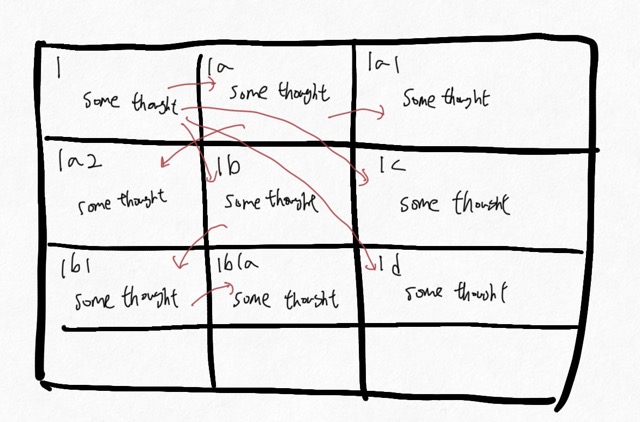 1
Some thought
1a
Some thought
1a1
Some thought
1a2
Some thought
1b
Some thought
1c
Some thought
1b1
Some thought
1b1a
Some thought
1d
Some thought